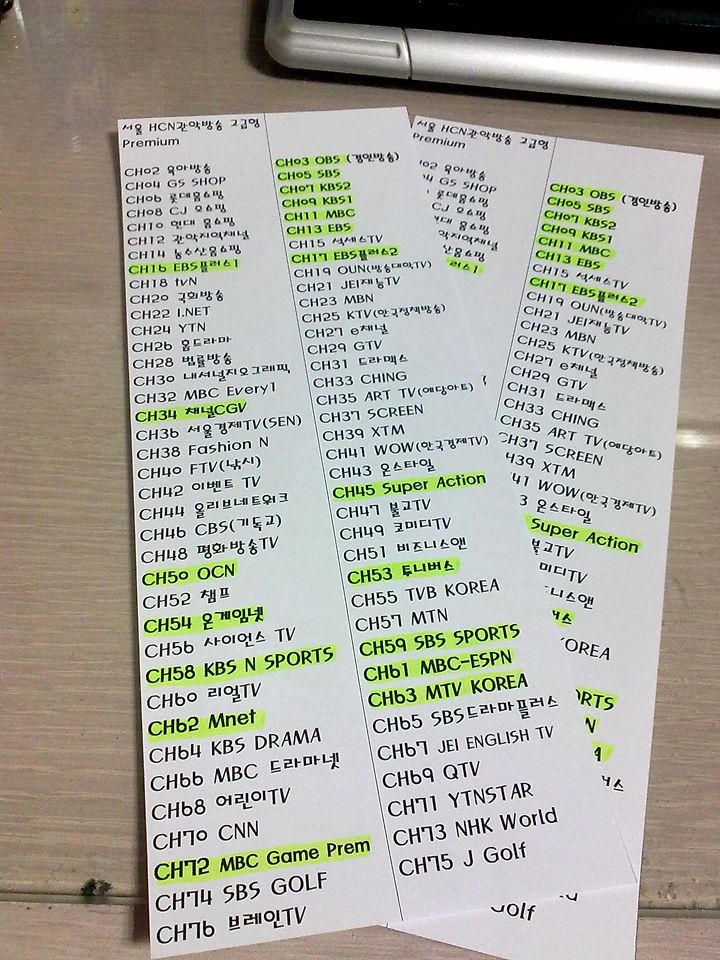 서울 HCN관악방송 고급형
Premium
CH02 육아방송
CH04 GS SHOP
CH06 롯데홈쇼핑
CH08 CJ 오쇼핑
CH10 현대 홈쇼핑
CH12 관악지역채널
CH14 농수산홈쇼핑
CH16 EBS플러스1
CH18 tvN
CH20 국회방송
CH22 I.NET
CH24 YTN
CH26 홈드라마
CH28 법률방송
CH30 내셔널지오그래픽
CH32 MBC Every1
CH34 채널CGV
CH36 서울경제TV(SEN)
CH38 Fashion N
CH40 FTV(낚시)
CH42 이벤트 TV
CH44 올리브네트워크
CH46 CBS(기독교)
CH48 평화방송TV
CH50 OCN
CH52 챔프
CH54 온게임넷
CH56 사이언스 TV
CH58 KBS N SPORTS
CH60 리얼TV
CH62 Mnet
CH64 KBS DRAMA
CH66 MBC 드라마넷
CH68 어린이TV
CH70 CNN
CH72 MBC Game Prem
CH74 SBS GOLF
CH76 브레인TV
CH03 OBS (경인방송)
CH05 SBS
CH07 KBS2
CH09 KBS1
CH11 MBC
CH13 EBS
CH15 석세스TV
CH17 EBS플러스2
CH19 OUN(방송대학TV)
CH21 JEI재능TV
CH23 MBN
CH25 KTV(한국정책방송)
CH27 e채널
CH29 GTV
CH31 드라맥스
CH33 CHING
CH35 ART TV(예당아트)
CH37 SCREEN
CH39 XTM
CH41 WOW(한국경제TV)
CH43 온스타일
CH45 Super Action
CH47 불교TV
CH49 코미디TV
CH51 비즈니스앤
CH53 투니버스
CH55 TVB KOREA
CH57 MTN
CH59 SBS SPORTS
CH61 MBC-ESPN
CH63 MTV KOREA
CH65 SBS드라마플러스
CH67 JEI ENGLISH TV
CH69 QTV
CH71 YTNSTAR
CH73 NHK World
CH75 J Golf
서울 HCN관악방송 고급형
Premium
02 육아방송
04 GS SHOP
롯데홈쇼핑
CJ 오쇼핑
현대 홈쇼핑
관악지역채널
홈쇼핑
플러스1
CH03 OBS (경인방송)
CH05 SBS
CH07 KBS2
CH09 KBS1
CH11 MBC
CH13 EBS
CH15 석세스TV
CH17 EBS플러스2
CH19 OUN(방송대학TV)
CH21 JEI재능TV
CH23 MBN
CH25 KTV(한국정책방송)
CH27 e채널
CH29 GTV
CH31 드라맥스
CH33 CHING
CH35 ART TV(예당아트)
CH37 SCREEN
H39 XTM
41 WOW(한국경제TV)
3 온스타일
Super Action
불교TV
미디TV
니스앤
스
KOREA
ORTS
N
A
러스
Golf